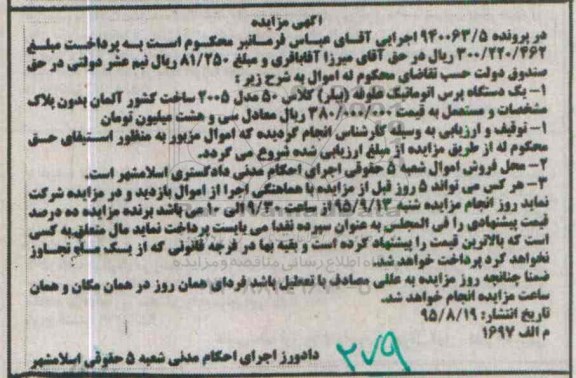 آگهی مزایده
در پرونده ۹۴۰۰۶۳/۵ اجرایی آقای عباس فرمانبر محکوم است به پرداخت مبلغ
۳۰۰/۲۲۰/۴۶۲ ریال در حق آقای میرزا آقاباقری و مبلغ ۸۱/۲۵۰ ریال نیم عشر دولتی در حق
صندوق دولت حسب تقاضای محکوم له اموال به شرح زیر :
۱- یک دستگاه پرس اتوماتیک علوفه (بیلر) کلاس ۵۰ مدل ۲۰۰۵ ساخت کشور آلمان بدون پلاک
مشخصات و مستعمل به قیمت ۳۸۰/۰۰۰/۰۰۰ ریال معادل سی و هشت میلیون تومان
۱- توقیف و ارزیابی به وسیله کارشناس انجام گردیده که اموال مزبور به منظور استیفای حق
محکوم له از طریق مزایده از مبلغ ارزیابی شده شروع می گردد.
۲- محل فروش اموال شعبه ۵ حقوقی اجرای احکام مدنی دادگستری اسلامشهر است.
۳- هر کس می تواند ۵ روز قبل از مزایده با هماهنگی اجرا از اموال بازدید و در مزایده شرکت
نماید روز انجام مزایده شنبه ۹۵/۹/۱۳ از ساعت ۹/۳۰ الی ۱۰ می باشد برنده مزایده ده درصد
قیمت پیشنهادی را فی المجلس به عنوان سپرده نقدا می بایست پرداخت نماید مال متعلق به کسی
است که بالاترین قیمت را پیشنهاد کرده است و بقیه بها در فرجه قانونی که از یک ماه تجاوز
نخواهد کرد پرداخت خواهد شد.
ضمنا چنانچه روز مزایده به عللی مصادف با تعطیل باشد فردای همان روز در همان مکان و همان
ساعت مزایده انجام خواهد شد.
تاریخ انتشار: ۹۵/۸/۱۹
م الف ۱۶۹۷
دادورز اجرای احکام مدنی شعبه ۵ حقوقی اسلامشهر
۲۷۹